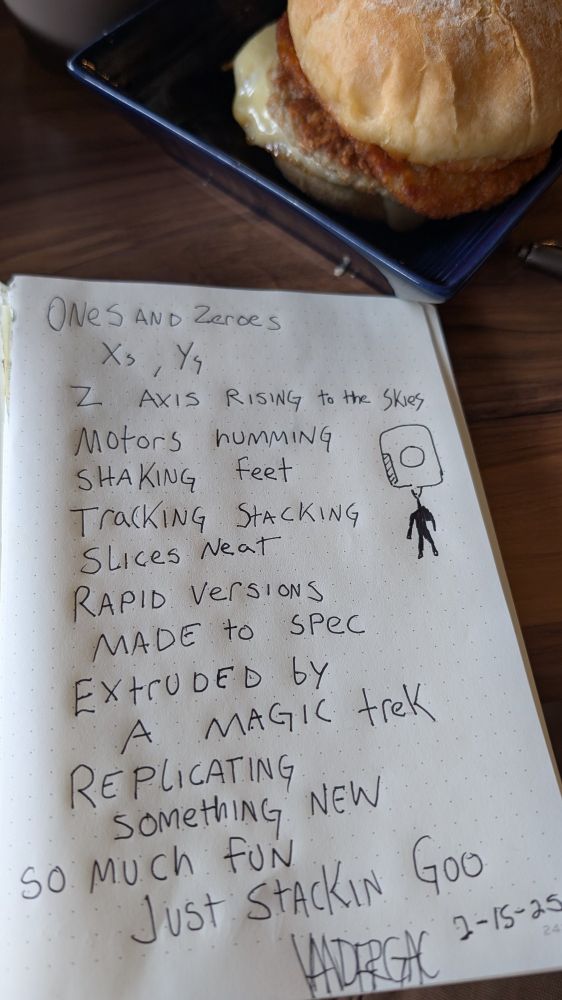 ONeS AND Zeroes
Xs, Ys
Z AXIS RISING to the SKies
Motors humming
SHAKING feet
TracKING STACKING
SLices Neat
RAPID versions
MADE to spec
EXtruDED by
A MAGIC treK
REPLICATING
something NEW
SO MUCH FUN
JUST STACKIN GOO
2-15-25